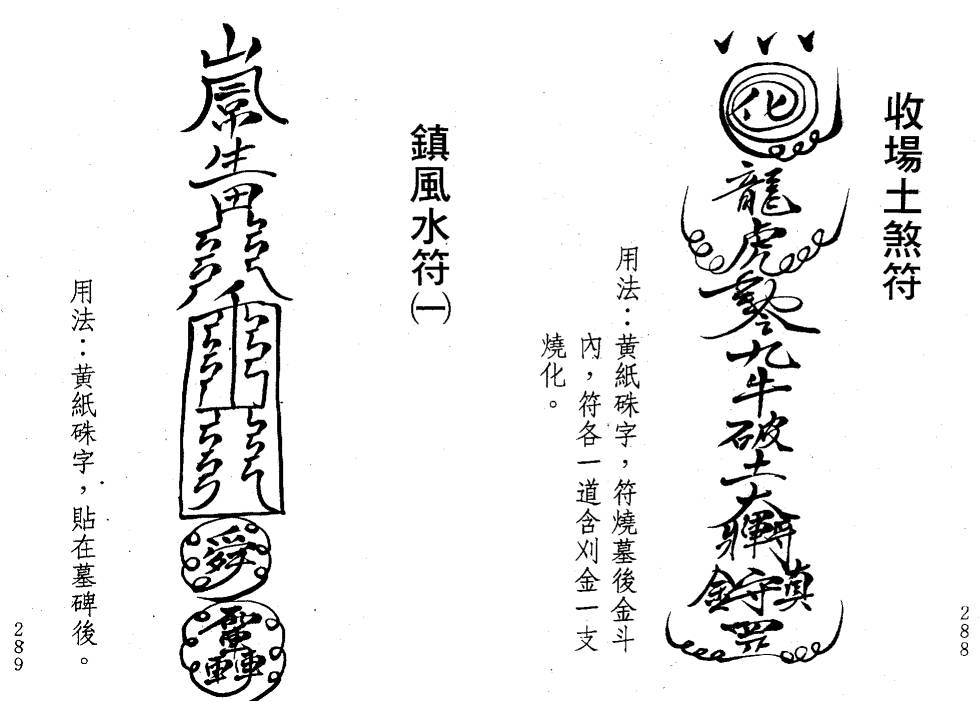 收場土煞符
化
龍虎
九牛破土大將軍
鎮守
用法：黃紙硃字，符燒墓後金斗
內，符各一道含刈金一支
燒化。
288
鎮風水符㈠
用法：黃紙硃字，貼在墓碑後。
289